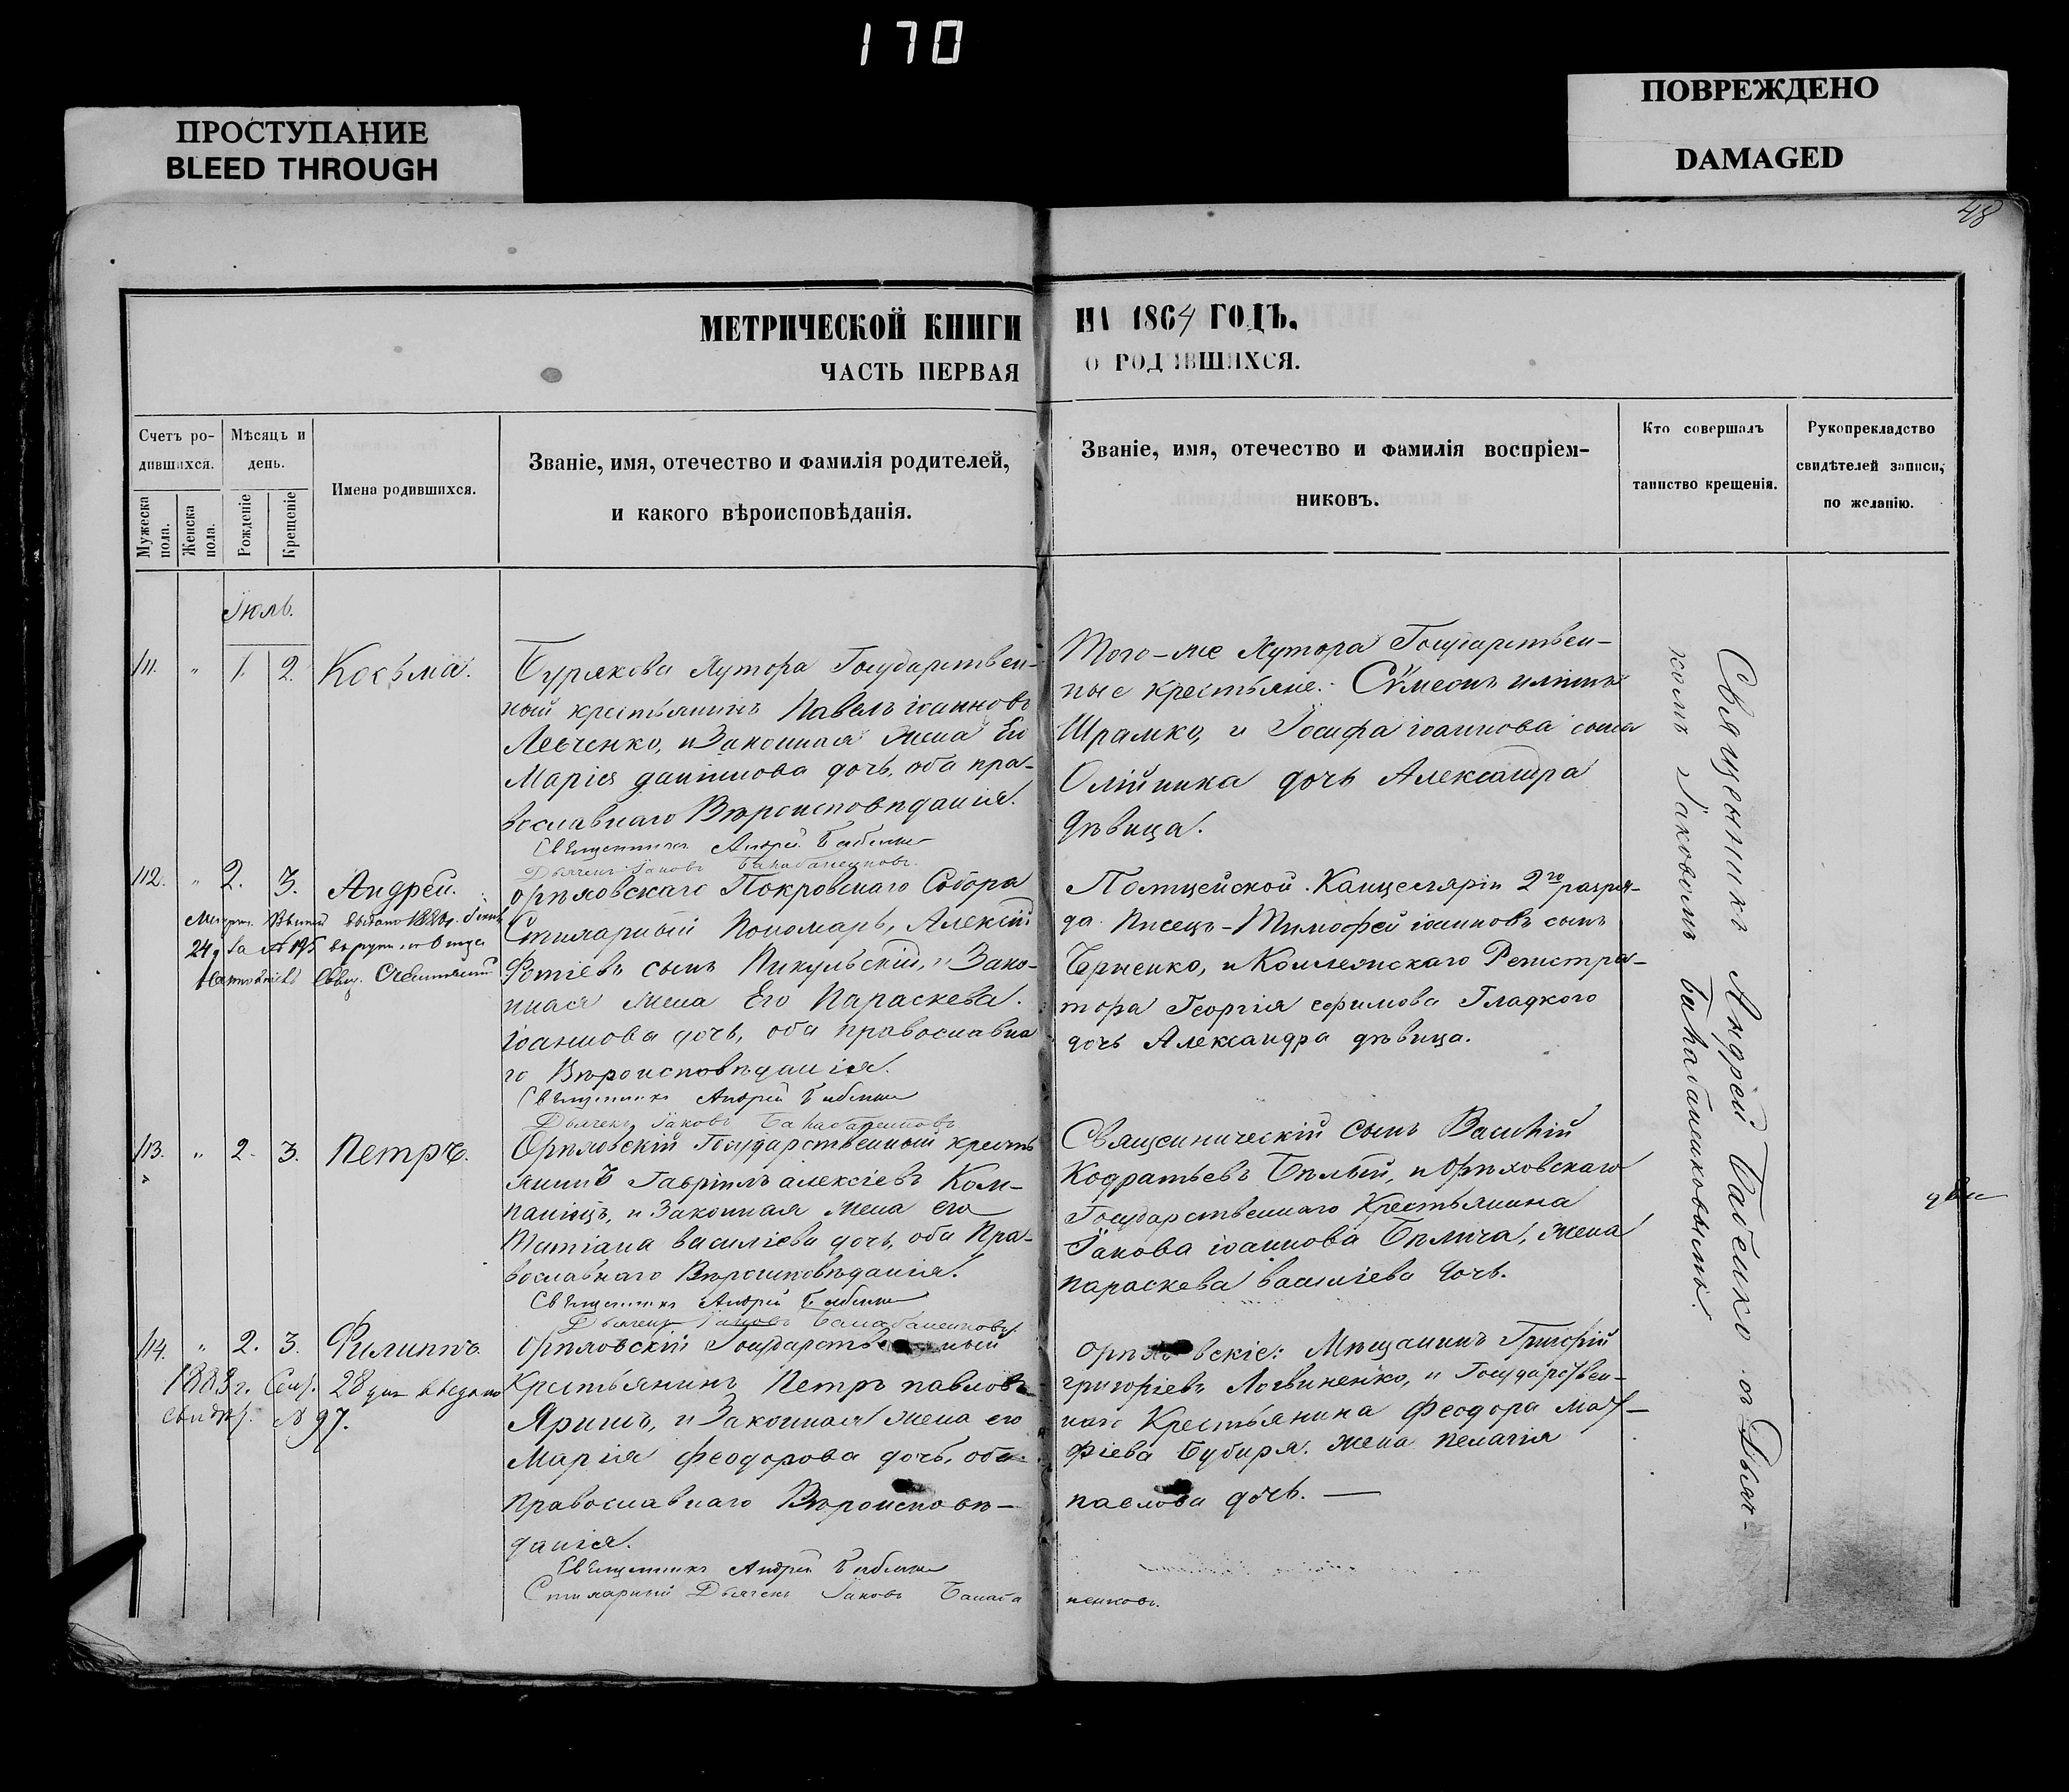 170
ПРОСТУПАНИЕ
BLEED THROUGH
ПОВРЕЖДЕНО
DAMAGED
48
МЕТРИЧЕСКОЙ КНИГИ НА 1864 ГОДЪ,
ЧАСТЬ ПЕРВАЯ О РОДИВШИХСЯ.
Счетъ ро-
дившихся.
Мужеска пола.
Женска пола.
Мѣсяцъ и
день.
Рожденіе
Крещеніе
Имена родившихся.
Званіе, имя, отечество и фамилія родителей,
и какого вѣроисповѣданія.
Званіе, имя, отечество и фамилія воспріем-
никовъ.
Кто совершалъ
таинство крещенія.
Рукоприкладство
свидѣтелей записи,
по желанію.
Іюль.
111. " 1. 2. Косьма.
Бурякова Хутора Государствен-
ный крестьянинъ Павелъ іоанновъ
Левченко, и Законная жена Его
Марія даніилова дочь, оба пра-
вославнаго Вѣроисповѣданія.
Священникъ Андрей Бабенко
Дьячекъ Іаковъ
Того-же Хутора Государствен-
ные крестьяне: Сѵмеонъ
Шрамко, и Іосифа іоаннова сына
Олійника дочь Александра
дѣвица.
112. " 2. 3. Андрей.
24 за № 195
Орѣховскаго Покровскаго Собора
Стихарный Пономарь, Алексій
Фотіевъ сынъ Пикульскій, и Зако-
нная жена Его Параскева
іоаннова дочь, оба православна
го Вѣроисповѣданія.
Священникъ Андрей Бабенко
Дьячекъ Іаковъ
Полицейской Канцеляріи 2го разря-
да Писецъ-Тимофей іоанновъ сынъ
и Коллежскаго Регистра-
тора Георгія ефимова Гладкого
дочь Александра дѣвица.
113. " 2. 3. Петръ.
Орѣховскій Государственный кресть
янинъ Гавріилъ алексіевъ Ком-
паніецъ, и Законная жена его
Татіана василіева дочь, оба Пра-
вославнаго Вѣроисповѣданія.
Священникъ Андрей Бабенко
Дьячекъ Іаковъ
Священническій сынъ Василій
Кодратьевъ Бѣлый, и Орѣховскаго
Государственнаго Крестьянина
Іакова іоаннова Бѣлича, жена
параскева василіева дочь.
114. " 2. 3. Филиппъ.
1883 г. Сент. 28 дня выдано
свидѣт. № 97.
Орѣховскій Государственный
Крестьянинъ Петръ павловъ
Яришъ, и Законная жена его
Марія феодорова дочь, оба
православнаго Вѣроисповѣ-
данія.
Священникъ Андрей Бабенко
Стихарный Дьячекъ Іаковъ
Орѣховскіе: Мѣщанинъ Григорій
григоріевъ Логвиненко, и Государствен-
наго Крестьянина Феодора Мат-
фіева Бубиря жена пелагія
павлова дочь. —
Священникъ Андрей Бабенко съ Дьяч-
комъ Іаковомъ